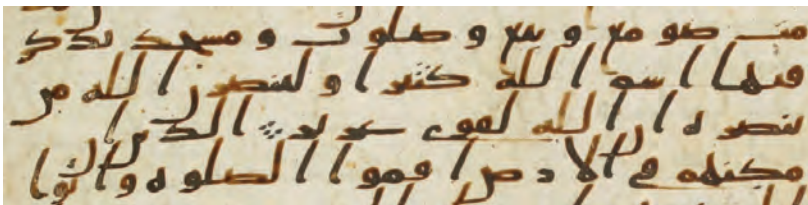 مت صومع وبيع وصلوت ومسجد يذكر
فيها اسم الله كثيرا ولينصرن الله من
ينصره ان الله لقوى عزيز الذين ان
مكنهم في الارض اقموا الصلوه واتوا